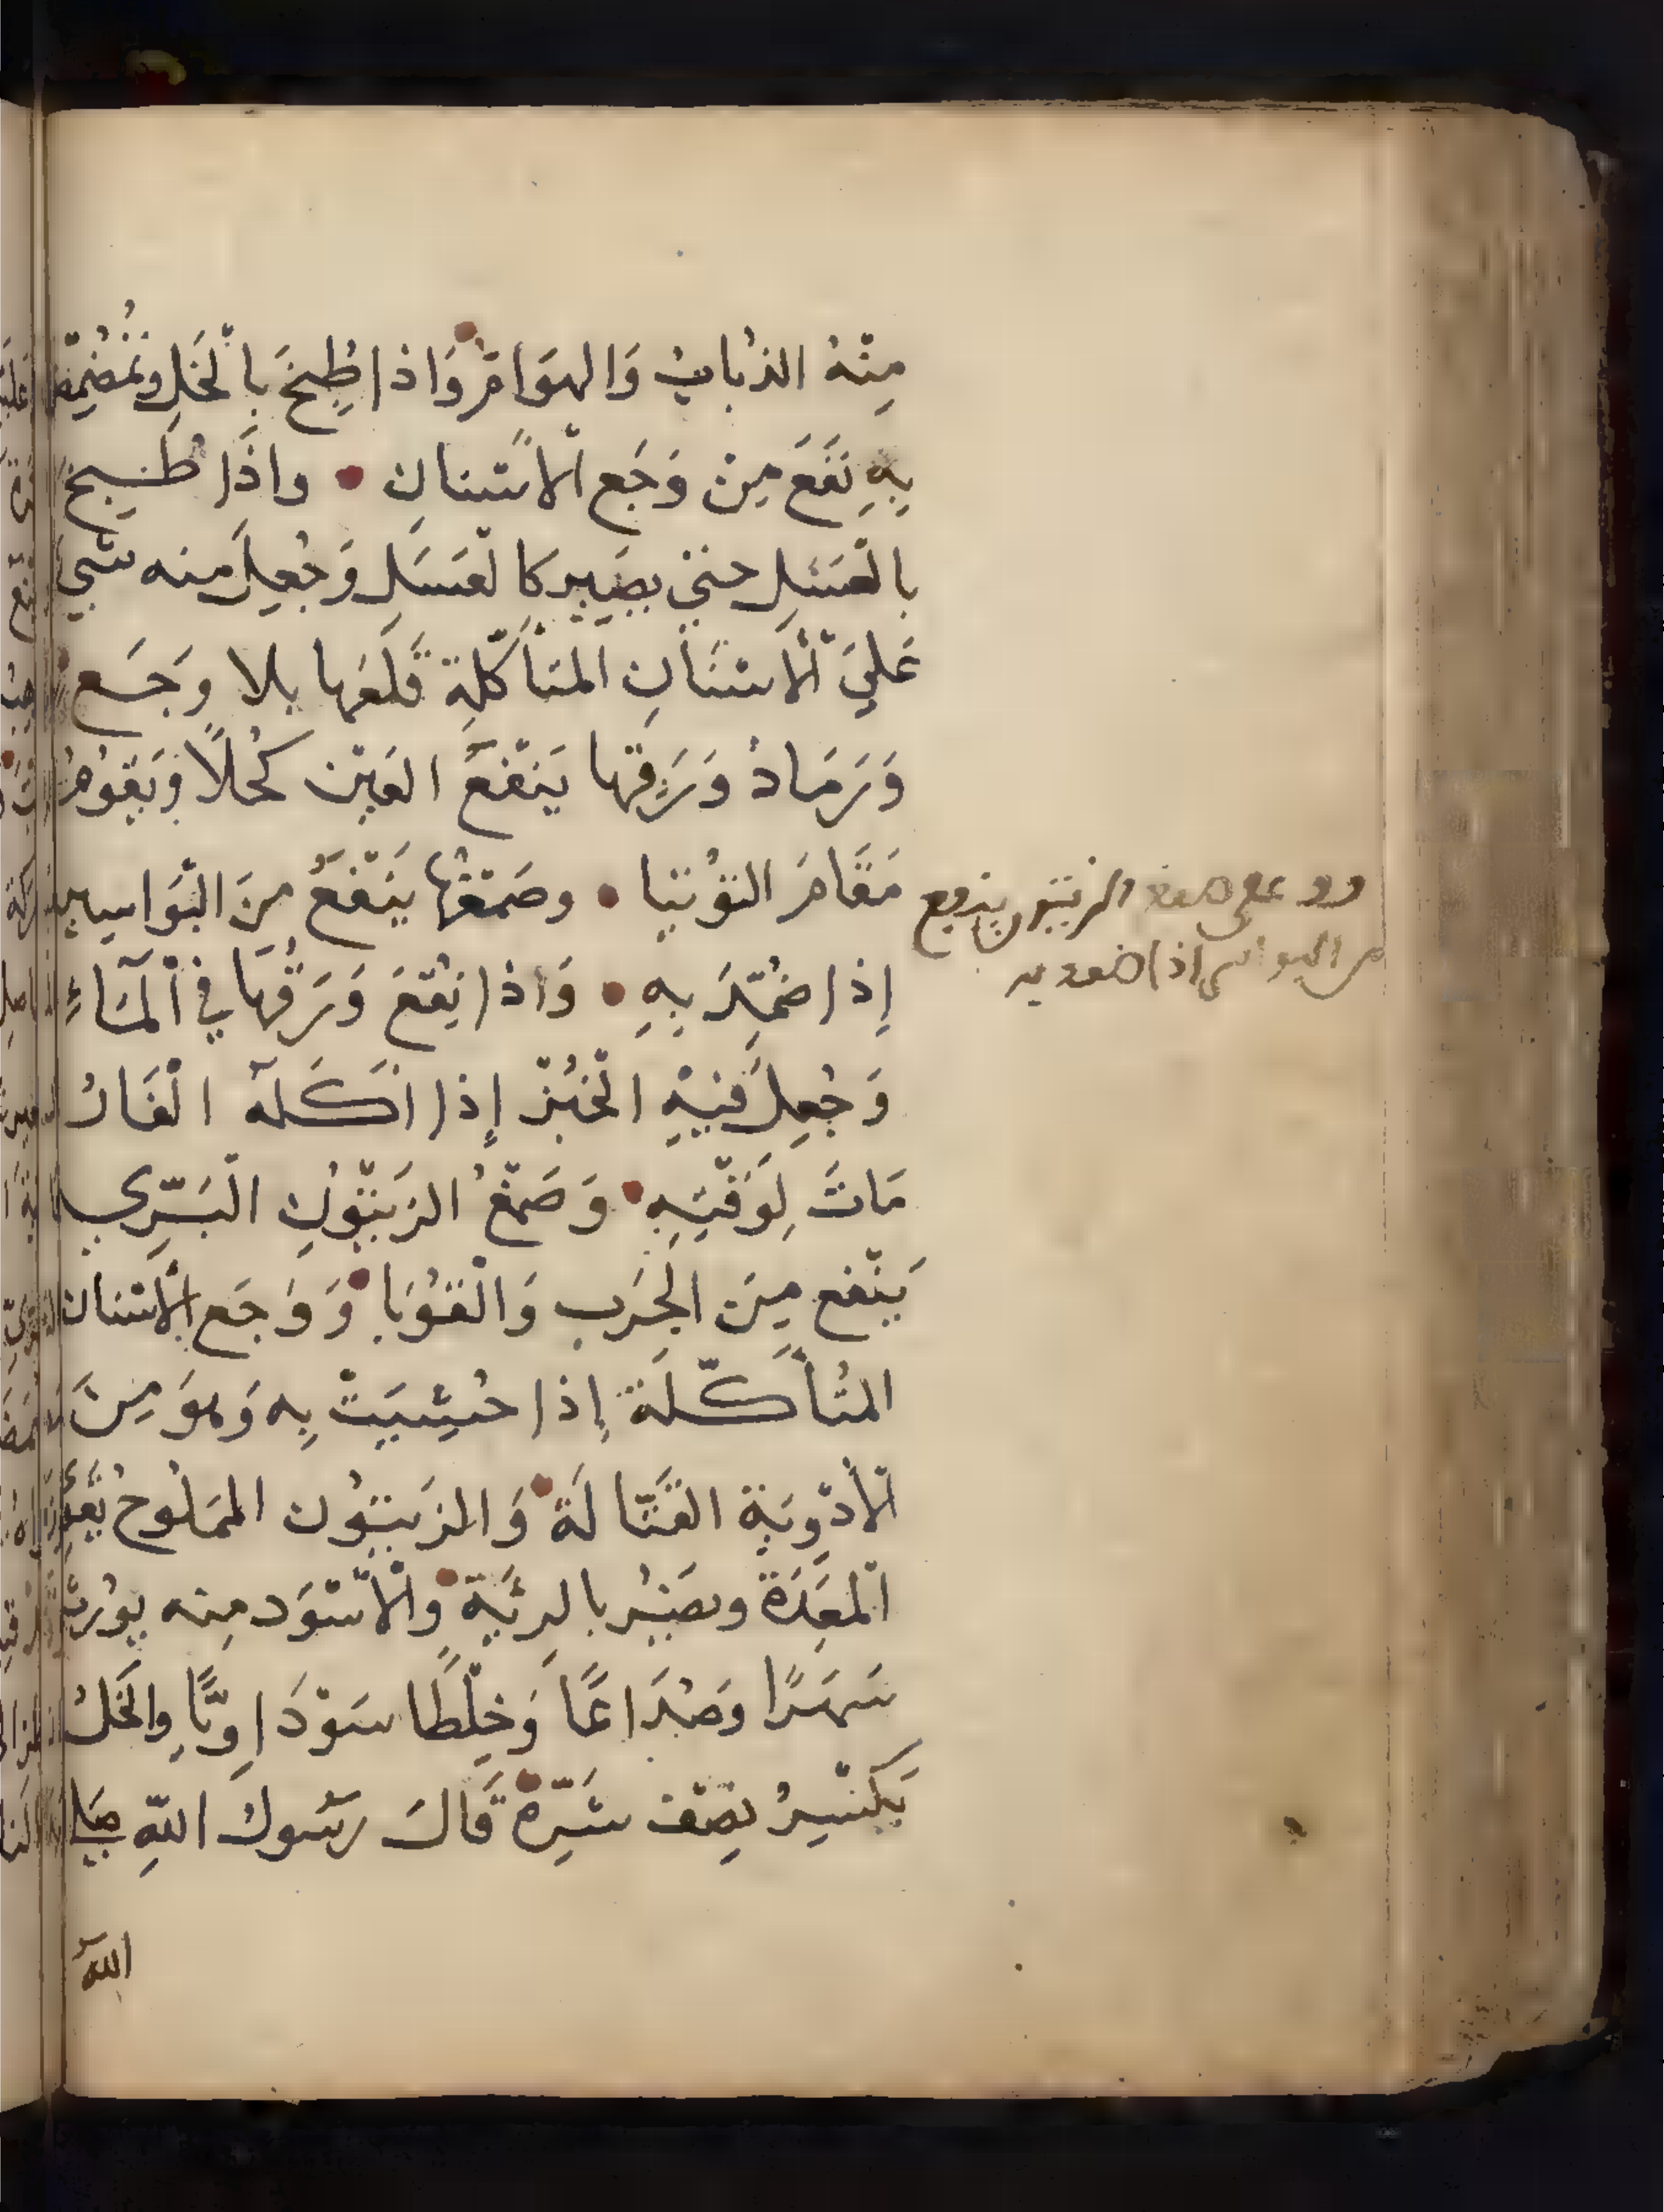 مِنْهُ الذُبابُ وَالهوَامّ وَاذا طُبِخَ بالْخَلِ وتُمُضْمِضَ
بِهِ نَفَعَ مِنْ وَجَعِ الْاَسْنانِ • واذَا طُبِخَ
بالْعَسَلِ حتي يصَيِيرَ كالْعَسَلِ وَجُعِلَ منه شَيٌ
عَليَ الْأَسْنَانِ المتأكّلةِ قَلَعَها بلا وَجَع
وَرَمَادُ وَرَقِها يَنْفَعُ العَيْنَ كُحْلاً وَيَقوُمُ
مَقَامَ التوُتيا • وصَمْغُها يَنْفَعُ مِنَ البَوَاسِير
إِذا ضُمِّدَ بِهِ • وَاذا نُقعَ وَرَقُهَا فِي الْمَآءِ
وَجُعِلَ فيْهِ الْخُبْزُ إِذا اكَلَهُ الْفَارُ
مَاتَ لِوَقْتِهِ • وَصَمْغُ الزيتوُنِ الْبَرِّي
يَنْفع مِنَ الجَرَب وَالْقوُبَا وَوَجَع الْاسنان
المُتأكّلَة إِذا حُشِيَتْ بِهِ وَهوَ مِنَ
الْأدْوِيَةِ القَتّالَةِ وَالزيتوُن المملُوح يُقَوِّي
الْمَعِدَةَ ويضُر بالرِئَةِ وَالْأسْوَد مِنه يوُرِث
سَهَرًا وَصُدَاعًا وَخِلْطًا سَوْدَاوِيًّا والخَلُ
يَكْسِرُ نِصْفَ شَرِّهِ قَالَ رَسُولُ اللّهِ صَلى
اللّهُ
صمغ الزيتون ينفع
من البواسير اذا ضمد به